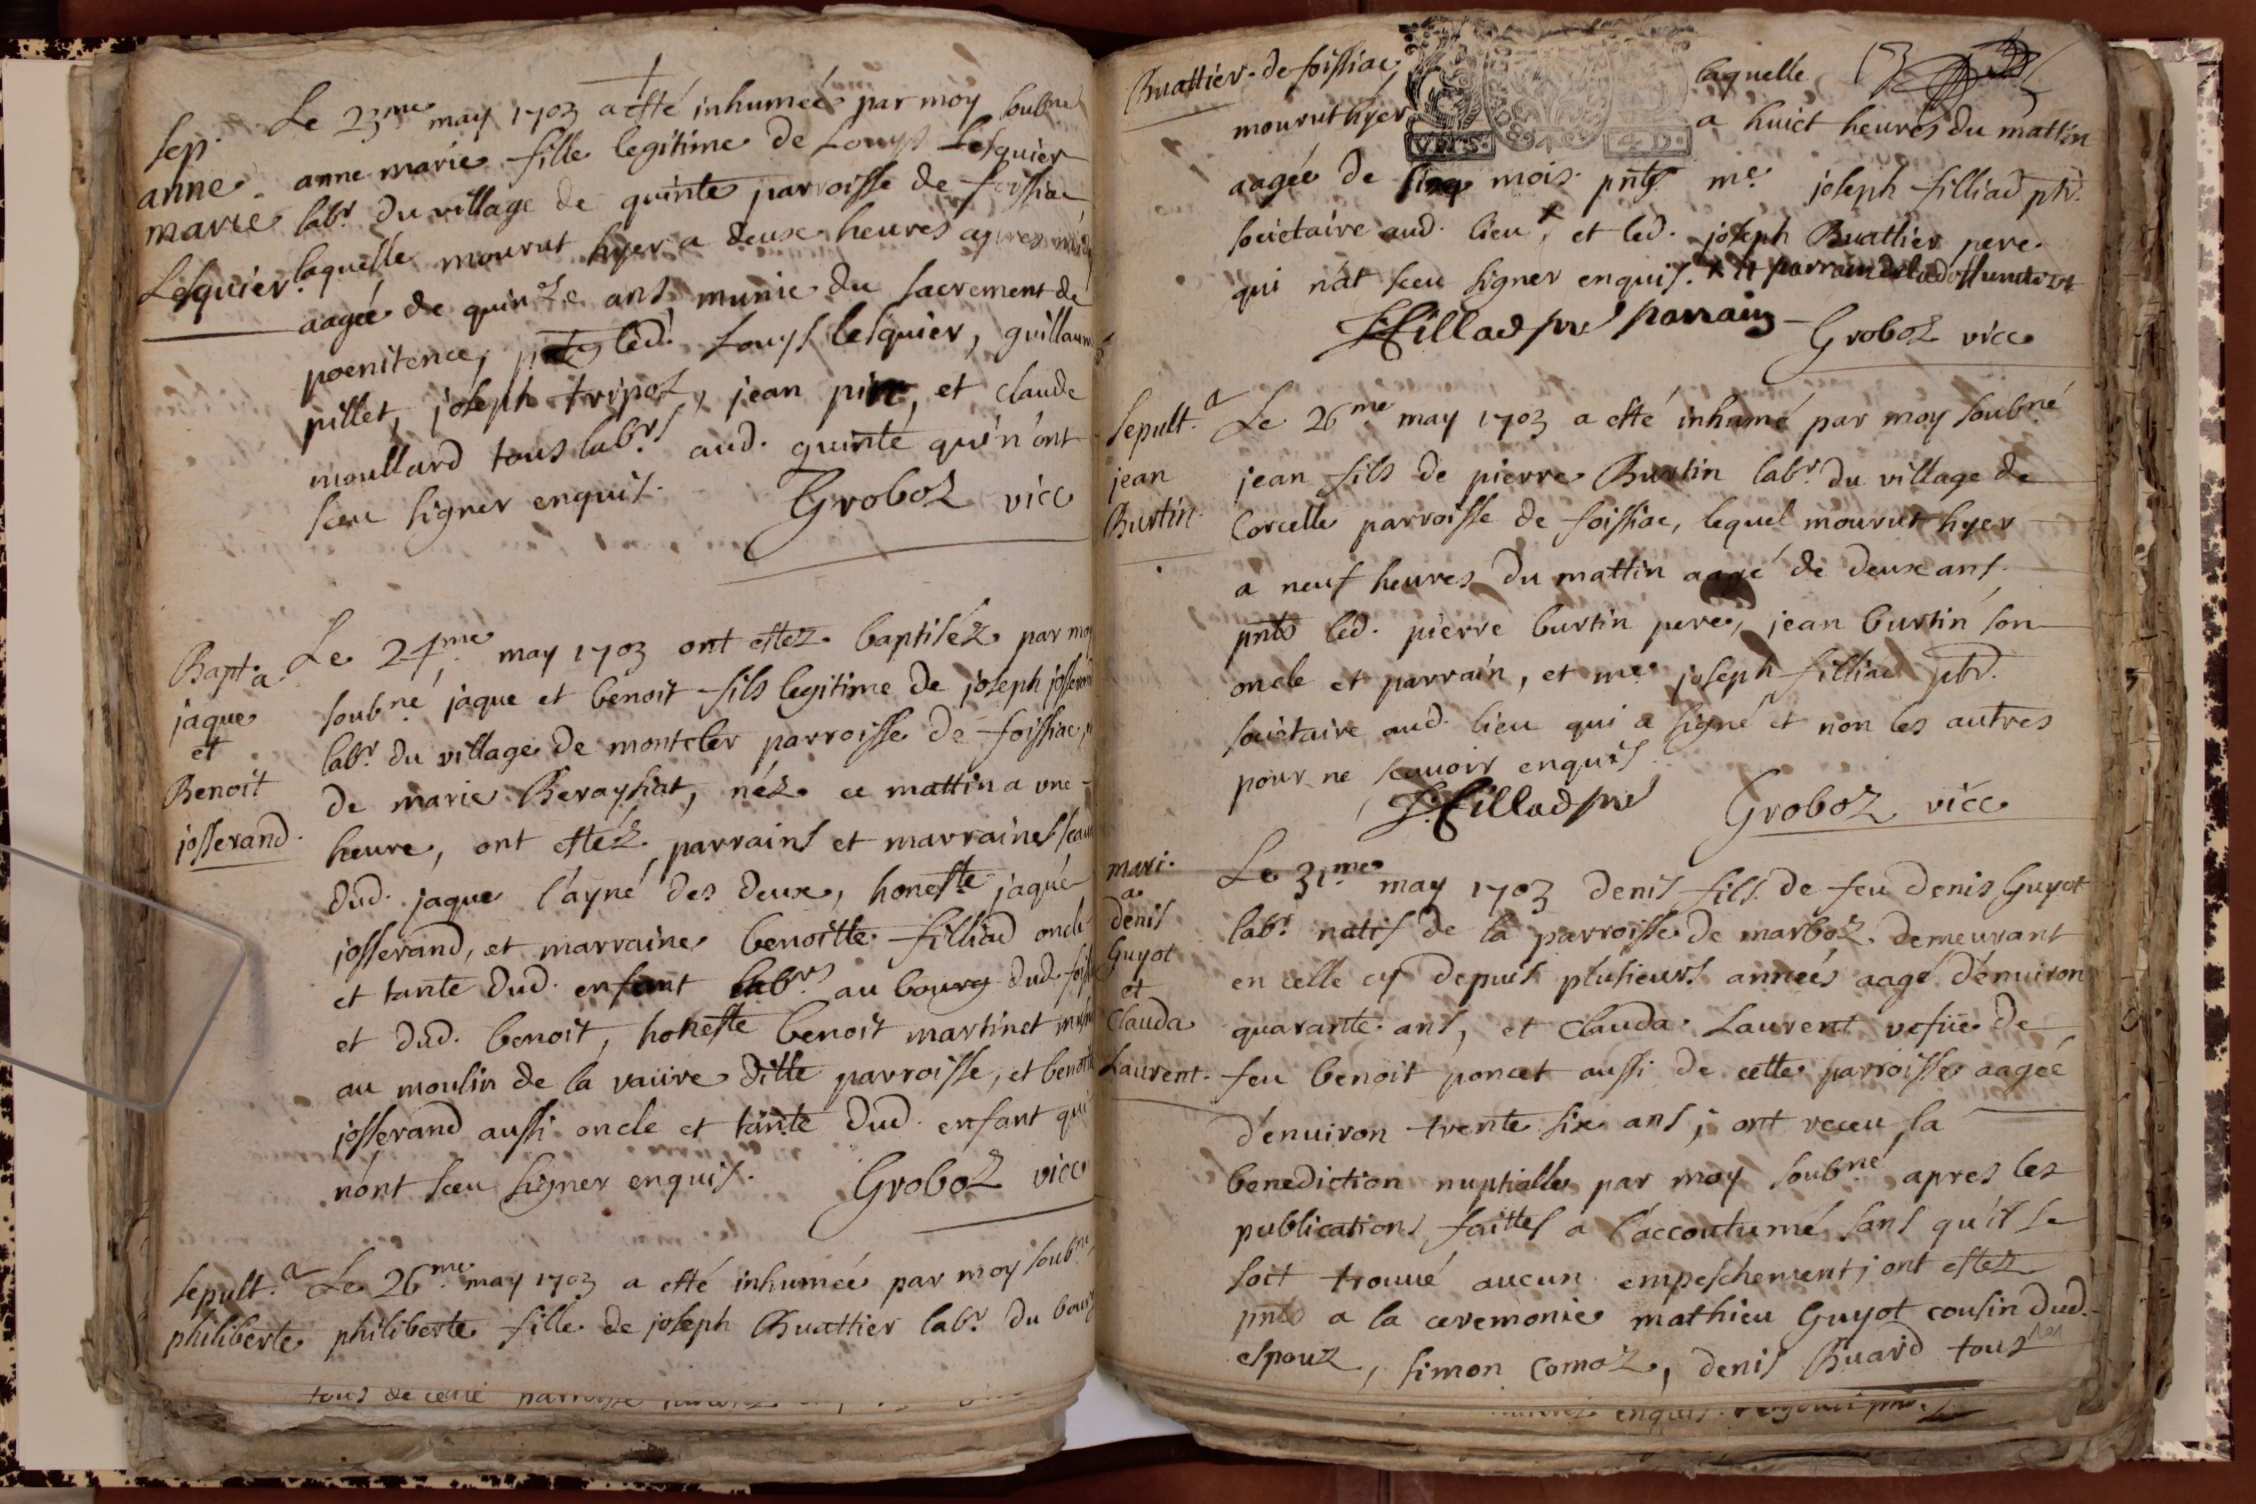 Sep.
anne
marie
Lesquier.
Le 23me may 1703 a esté inhumée par moy soubné
anne marie fille legitime de Louys Lesquier
labr. du village de quinte parroisse de foissiac
laquelle mourut hyer a deux heures apres midy
aagée de quinze ans munie du sacrement de
poenitence, pnts led. Louys lesquier, guillaume
pillet, joseph tripoz, jean pin, et claude
moullard tous labrs. aud. quinté qui n'ont
sceu signer enquis.
Groboz vice
Bapt.a
jaque
et
Benoit
josserand.
Le 24me may 1703 ont estez baptiséz par moy
soubné jaque et benoit fils legitime de joseph josserand
labr. du village de montcler parroisse de foissiac,
de marie Berayhat, néz ce mattin a une
heure, ont estéz parrains et marraines
dud. jaque l'ayné des deux, honeste jaque
josserand, et marraine benoitte filliad oncle
et tante dud. enfant labrs. au bourg dud.
et dud. benoit, honeste benoit martinet
au moulin de la vaure ditte parroisse, et benoitte
josserand aussi oncle et tante dud. enfant qui
n'ont sceu signer enquis.
Groboz vice
Sepult.a
philiberte
Le 26me may 1703 a esté inhumée par moy soubné
philiberte fille de joseph Buattier labr. du bourg
tous de cette parroisse
Buattier de foissiac laquelle
mourut hyer a huict heures du mattin
aagée de cinq mois pnts me. joseph filliad ptr.
societaire aud. lieu, et led. joseph Buattier pere
qui n'at sceu signer enquis. et parrain de lad. deffuncte
J Filliad ptre parrain
Groboz vice
Sepult.a
jean
Burtin
Le 26me may 1703 a esté inhumé par moy soubné
jean fils de pierre Burtin labr. du village de
Corcelle parroisse de foissiac, lequel mourut hyer
a neuf heures du mattin aagé de deux ans.
pnts led. pierre burtin pere, jean burtin son
oncle et parrain, et me. joseph filliad ptr.
societaire aud. lieu qui a signé et non les autres
pour ne scavoir enquis.
J. Filliad ptre
Groboz vice
mari.
a
denis
Guyot
et
Clauda
Laurent.
Le 31.me may 1703 denis fils de feu denis Guyot
labr. natif de la parroisse de marboz demeurant
en celle cy depuis plusieurs années aagé d'environ
quarante ans, et Clauda Laurent vefüe de
feu benoit poncet aussi de cette parroisse aagée
d'environ trente six ans, ont receu la
benediction nuptialle par moy soubné apres les
publications faittes a l'accoutumé sans qu'il se
soit trouué aucun empeschement, ont estez
pnts a la ceremonie mathieu Guyot cousin dud.
espouz, simon comoz, denis Buard tous
enquis